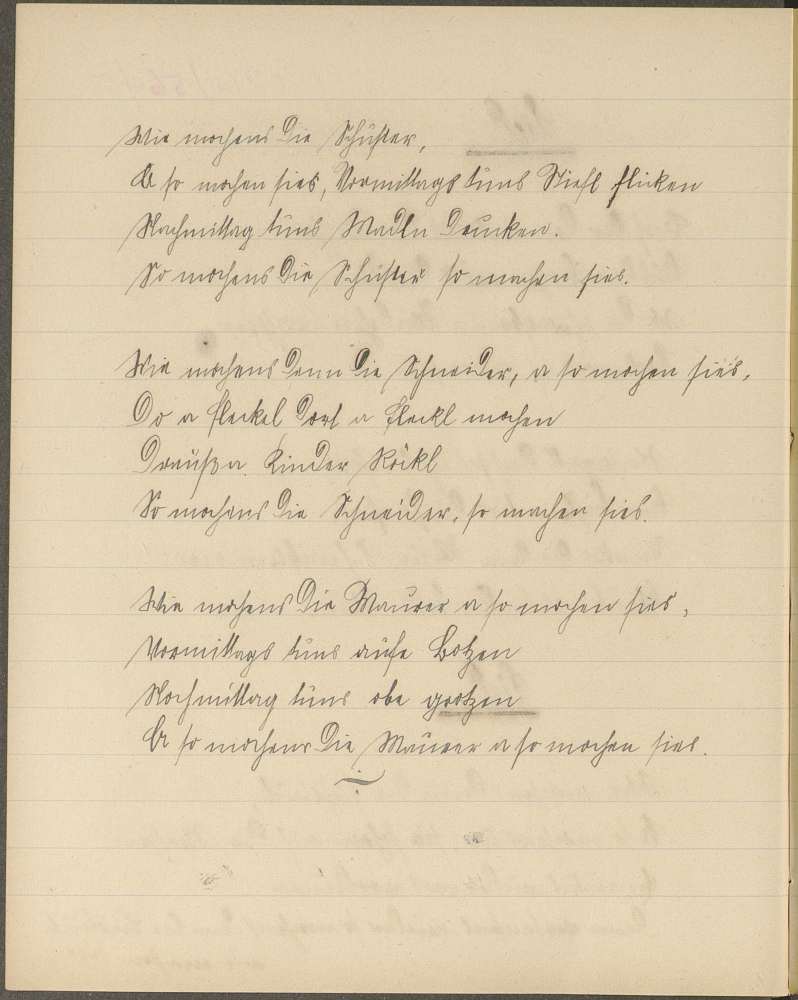 Wie mochens die Schuster,
A so mochen sies, Vormittags tuns Stiefl flicken
Nachmittag tuns Madln drucken.
So mochens die Schuster so machen sies.
Wie mochens denn die Schneider, a so mochen sies,
Do a fleckel dort a fleckl mochen
Drauß a Kinder Röckl
So mochens die Schneider, so machen sies.
Wie mochens die Maurer a so mochen sies,
Vormittags tuns aufe Botzen
Nochmittag tuns obe grotzen
A so mochens die Maurer a so mochen sies.